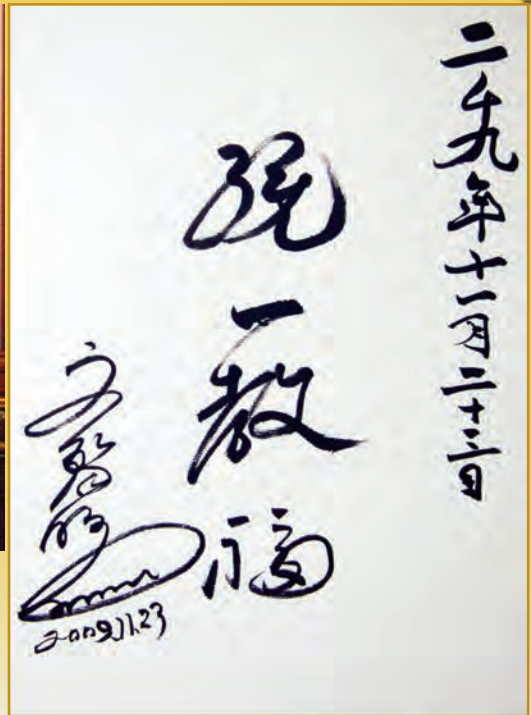 二千九年十一月二十三日
統一教福
文鮮明
2009.11.23